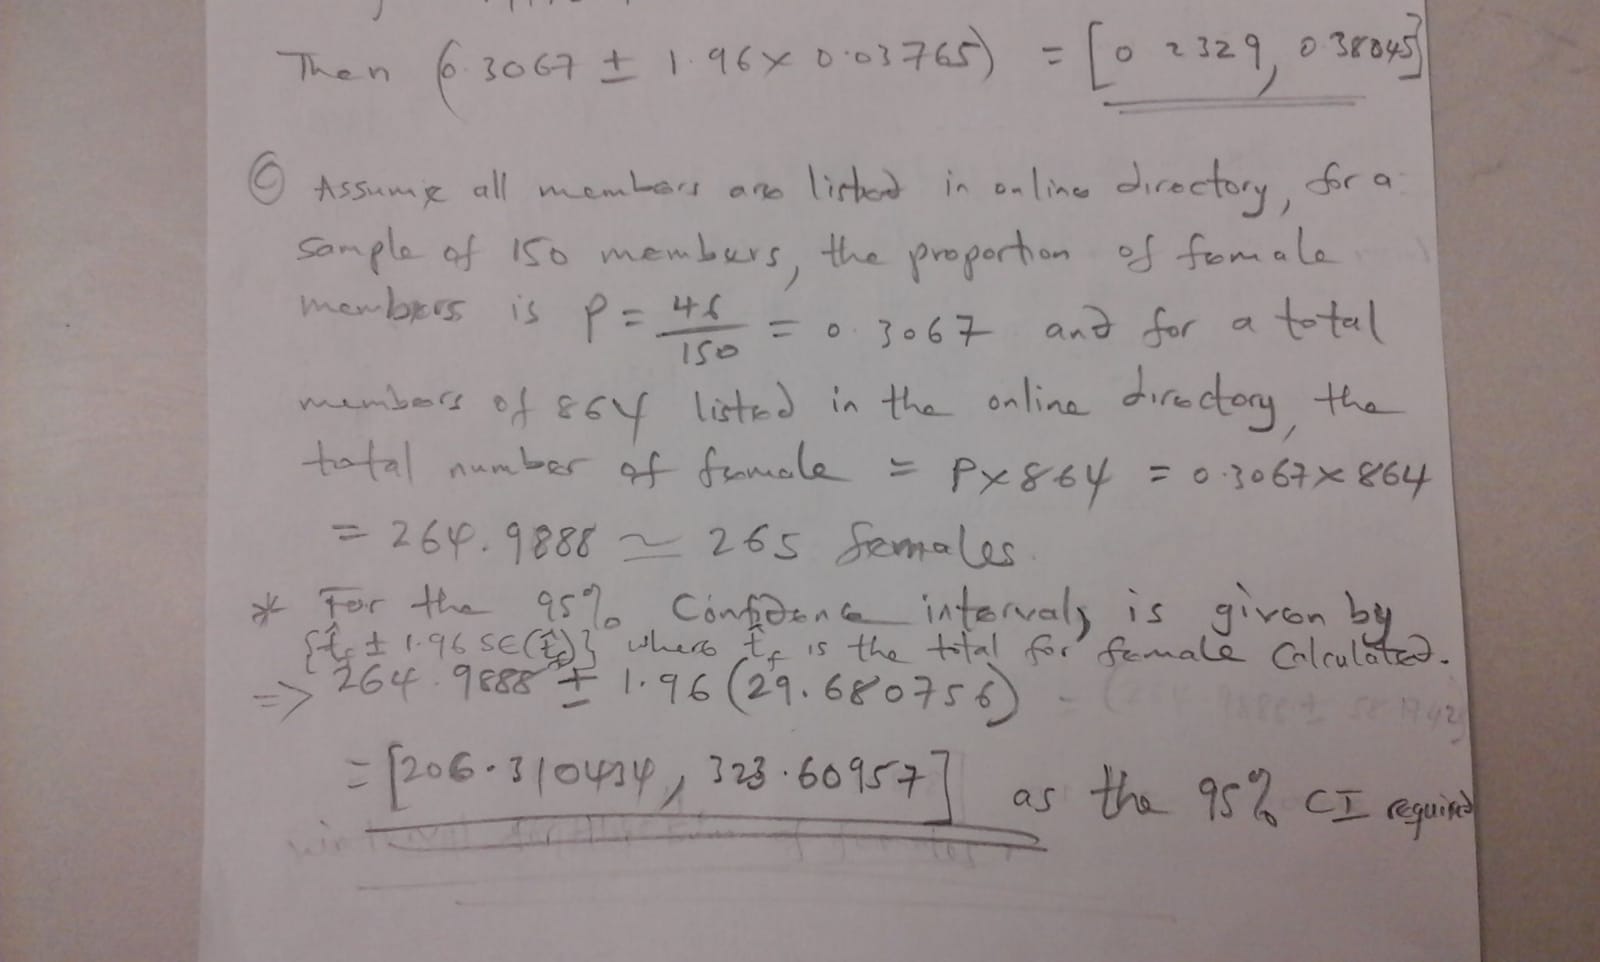 Then (0.3067 ± 1.96 × 0.03765) = [0.2329, 0.38045]
(c) Assume all members are listed in online directory, for a
sample of 150 members, the proportion of female
members is P = 46/150 = 0.3067 and for a total
members of 864 listed in the online directory, the
total number of female = P × 864 = 0.3067 × 864
= 264.9888 ≃ 265 females.
* For the 95% Confidence intervals is given by
{t̂f ± 1.96 SE(t̂f)} where t̂f is the total for female Calculated.
=> 264.9888 ± 1.96 (29.680756)
= [206.310434, 323.60957] as the 95% CI required